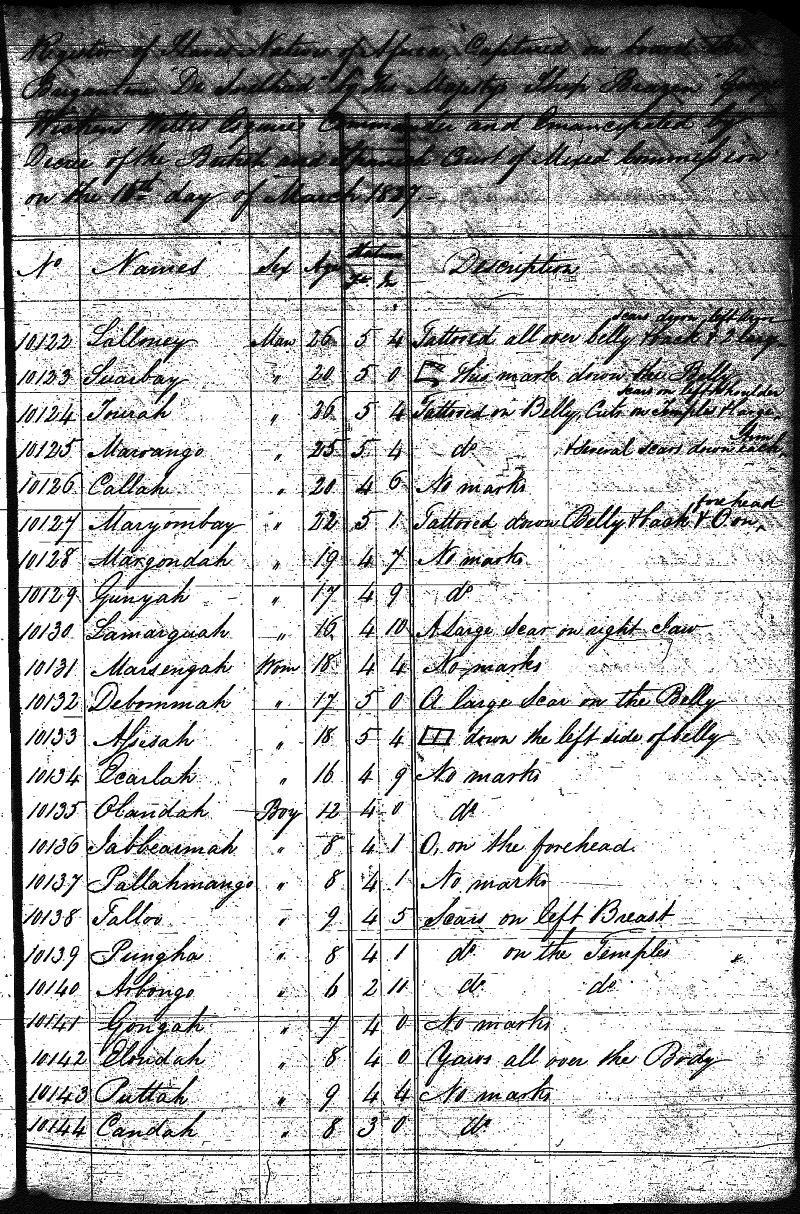 Register of Slaves Natives of Africa Captured on board the
Brigantine "De Snelheid" by His Majesty's Ship Brazen George
Wickens Willes Esquire Commander and Emancipated by
Decree of the British and Spanish Court of Mixed Commission
on the 15th day of March 1827.
No Names Sex Age Stature Description
Ft In
scars down left Arm
10122 Lalloney Man 26 5 4 Tattored all over belly & back & 2 large
10123 Suarbay " 20 5 0 This mark down the Belly
scars on left Shoulder
10124 Tourah " 26 5 4 Tattored on Belly, Cuts on Temples & large
Arm
10125 Marvango " 25 5 4 do & several scars down each
10126 Callah " 20 4 6 No marks
forehead
10127 Maryombay " 22 5 1 Tattored down Belly & back & O on
10128 Margondah " 19 4 7 No marks
10129 Gunyah " 17 4 9 do
10130 Lamarquah " 16 4 10 A Large Scar on right Jaw
10131 Marsengah Wom 18 4 4 No marks
10132 Debommah " 17 5 0 A large Scar on the Belly
10133 Assesah " 18 5 4 down the left side of belly
10134 Ecarlah " 16 4 9 No marks
10135 Olandah Boy 12 4 0 do
10136 Jabbearmah " 8 4 1 O, on the forehead
10137 Pallahmango " 8 4 1 No marks
10138 Talloo " 9 4 5 Scars on left Breast
10139 Pungha " 8 4 1 do on the Temples
10140 Arbongo " 6 2 11 do do
10141 Gongah " 7 4 0 No marks
10142 Elondah " 8 4 0 Yaws all over the Body
10143 Puttah " 9 4 4 No marks
10144 Candah " 8 3 0 do